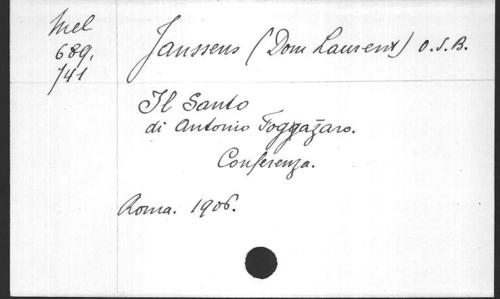 Mel
689,
741
Janssens (Dom Laurent) O.S.B.
Il Santo
di Antonio Foggazaro.
Conferenza.
Roma. 1906.